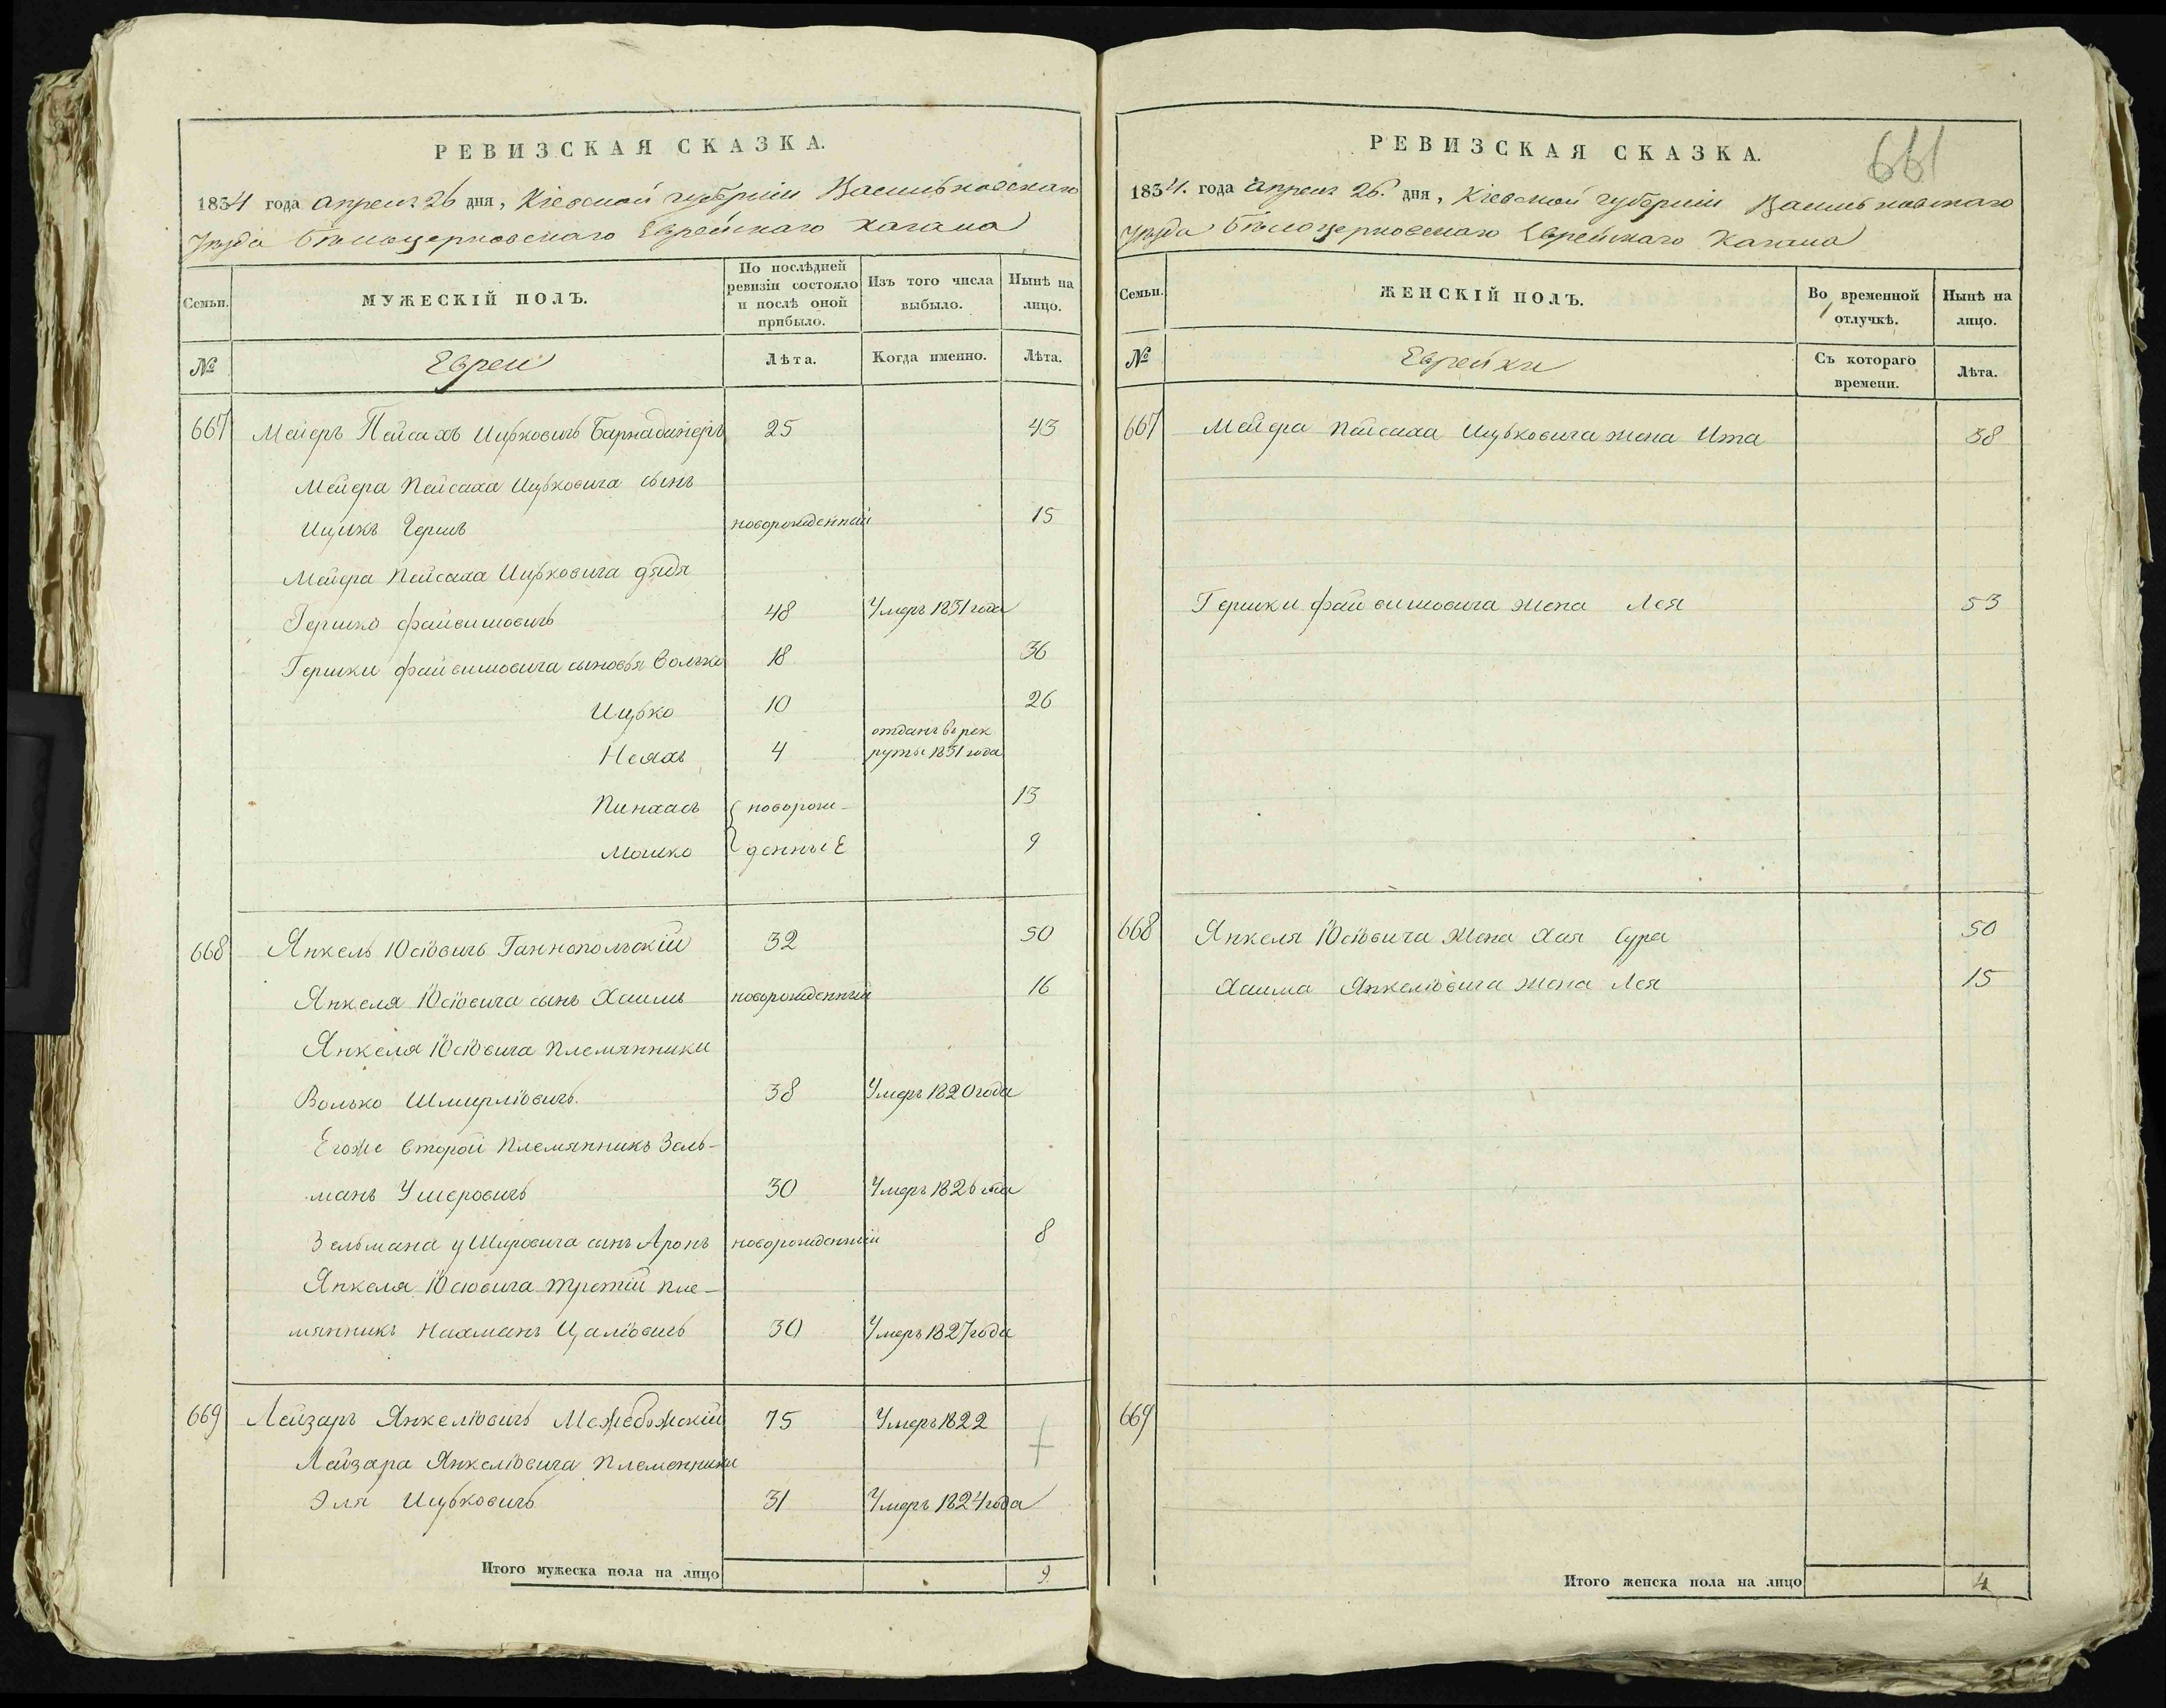 РЕВИЗСКАЯ СКАЗКА.
1834 года апреля 26 дня, Кіевской губерніи Васильковскаго
Уезда Бѣлоцерковскаго Еврейскаго Кагала
Семьи.
МУЖЕСКІЙ ПОЛЪ.
По послѣдней ревизіи состояло и послѣ оной прибыло.
Изъ того числа выбыло.
Нынѣ на лицо.
№
Евреи
Лѣта.
Когда именно.
Лѣта.
667 Мейеръ Пейсахъ Ицьковичъ 25 43
Мейера Пейсаха Ицьковича сынъ
Ицикъ Гершъ новорожденный 15
Мейера Пейсаха Ицьковича дядя
Гершко Файвишовичъ 48 Умеръ 1831 года
Гершки Файвишовича сыновья Волько 18 36
Ицько 10 26
отданъ въ рек
Неяхъ 4 руты 1831 года
Пинхасъ новорож- 13
Мошко денныЕ 9
668 Янкель Юсіовичъ Ганнопольскій 32 50
Янкеля Юсіовича сынъ Хаимъ новорожденный 16
Янкеля Юсіовича племянники
Волько Шмирліовичъ. 38 Умеръ 1820 года
Егоже второй племянникъ Зель-
манъ Ушеровичъ 30 Умеръ 1826 года
Зельмана Ушировича сынъ Аронъ новорожденный 8
Янкеля Юсіовича третій пле-
мянникъ Нахманъ Цаліовичъ 30 Умеръ 1827 года
669 Лейзаръ Янкеліовичъ Межебожскій 75 Умеръ 1822
Лейзара Янкеліовича племенники
Эля Ицьковичъ 31 Умеръ 1824 года
Итого мужеска пола на лицо 9.
661
РЕВИЗСКАЯ СКАЗКА.
1834. года апреля 26. дня, Кіевской губерніи Васильковскаго
Уезда Бѣлоцерковскаго Еврейскаго Кагала
Семьи.
ЖЕНСКІЙ ПОЛЪ.
Во временной отлучкѣ.
Нынѣ на лицо.
№
Еврейки
Съ котораго времени.
Лѣта.
667 Мейера Пейсаха Ицьковича жена Ита 38
Гершки Файвишовича жена Лея 53
668 Янкеля Юсіовича жена Хая Сура 50
Хаима Янкеліовича жена Лея 15
669
Итого женска пола на лицо 4